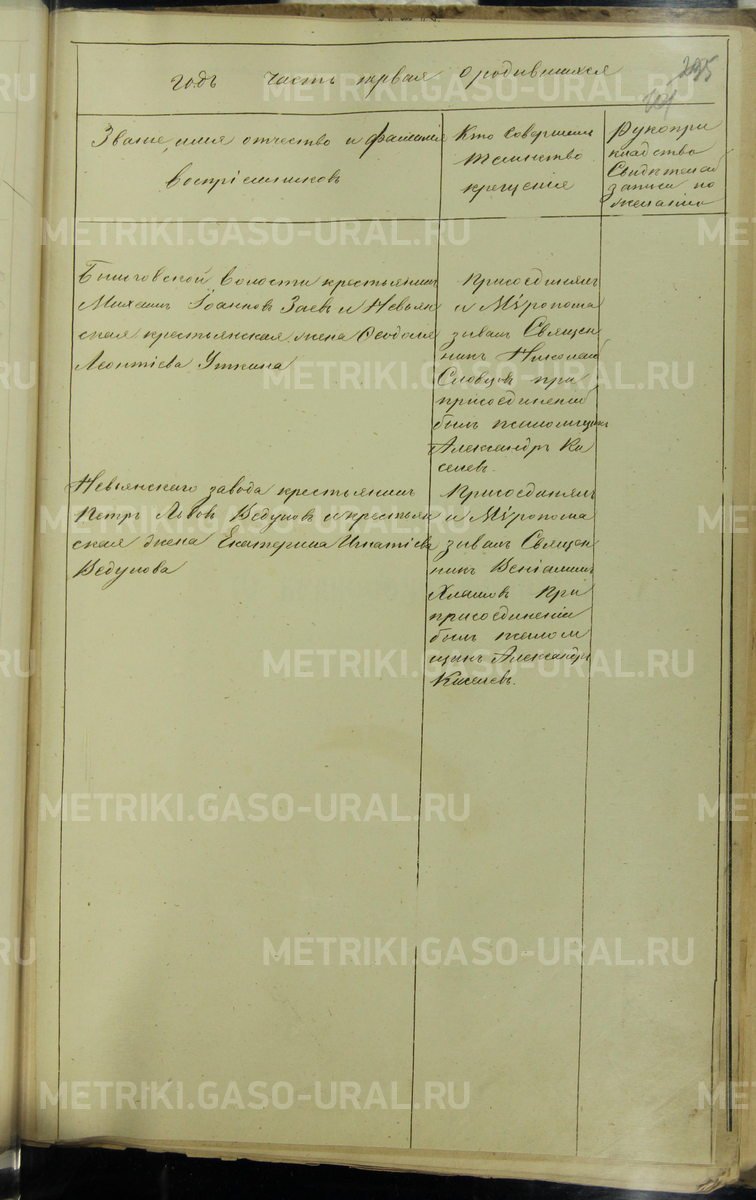 295
годъ часть первая о родившихся
Званіе, имя отчество и фамилія
воспріемниковъ
Кто совершилъ
таинство
крещенія
Рукопри
кладство
Свидѣтелей
записи по
желанію
волости крестьянинъ
Михаилъ Іоанновъ Заевъ и Невьян
ская крестьянская жена Ѳеодосія
Леонтіева Уткина
Присоединялъ
и Мѵропома
зывалъ Священ
никъ Николай
Словцовъ при
присоединеніи
былъ псаломщикъ
Александръ Ки
селевъ.
Невьянскаго завода крестьянинъ
Петръ Львовъ Ведуновъ и крестьян
ская жена Екатерина Игнатіева
Ведунова
Присоединялъ
и Мѵропома
зывалъ Священ
никъ Веніаминъ
при
присоединеніи
былъ псалом
щикъ Александръ
Киселевъ.
METRIKI.GASO-URAL.RU